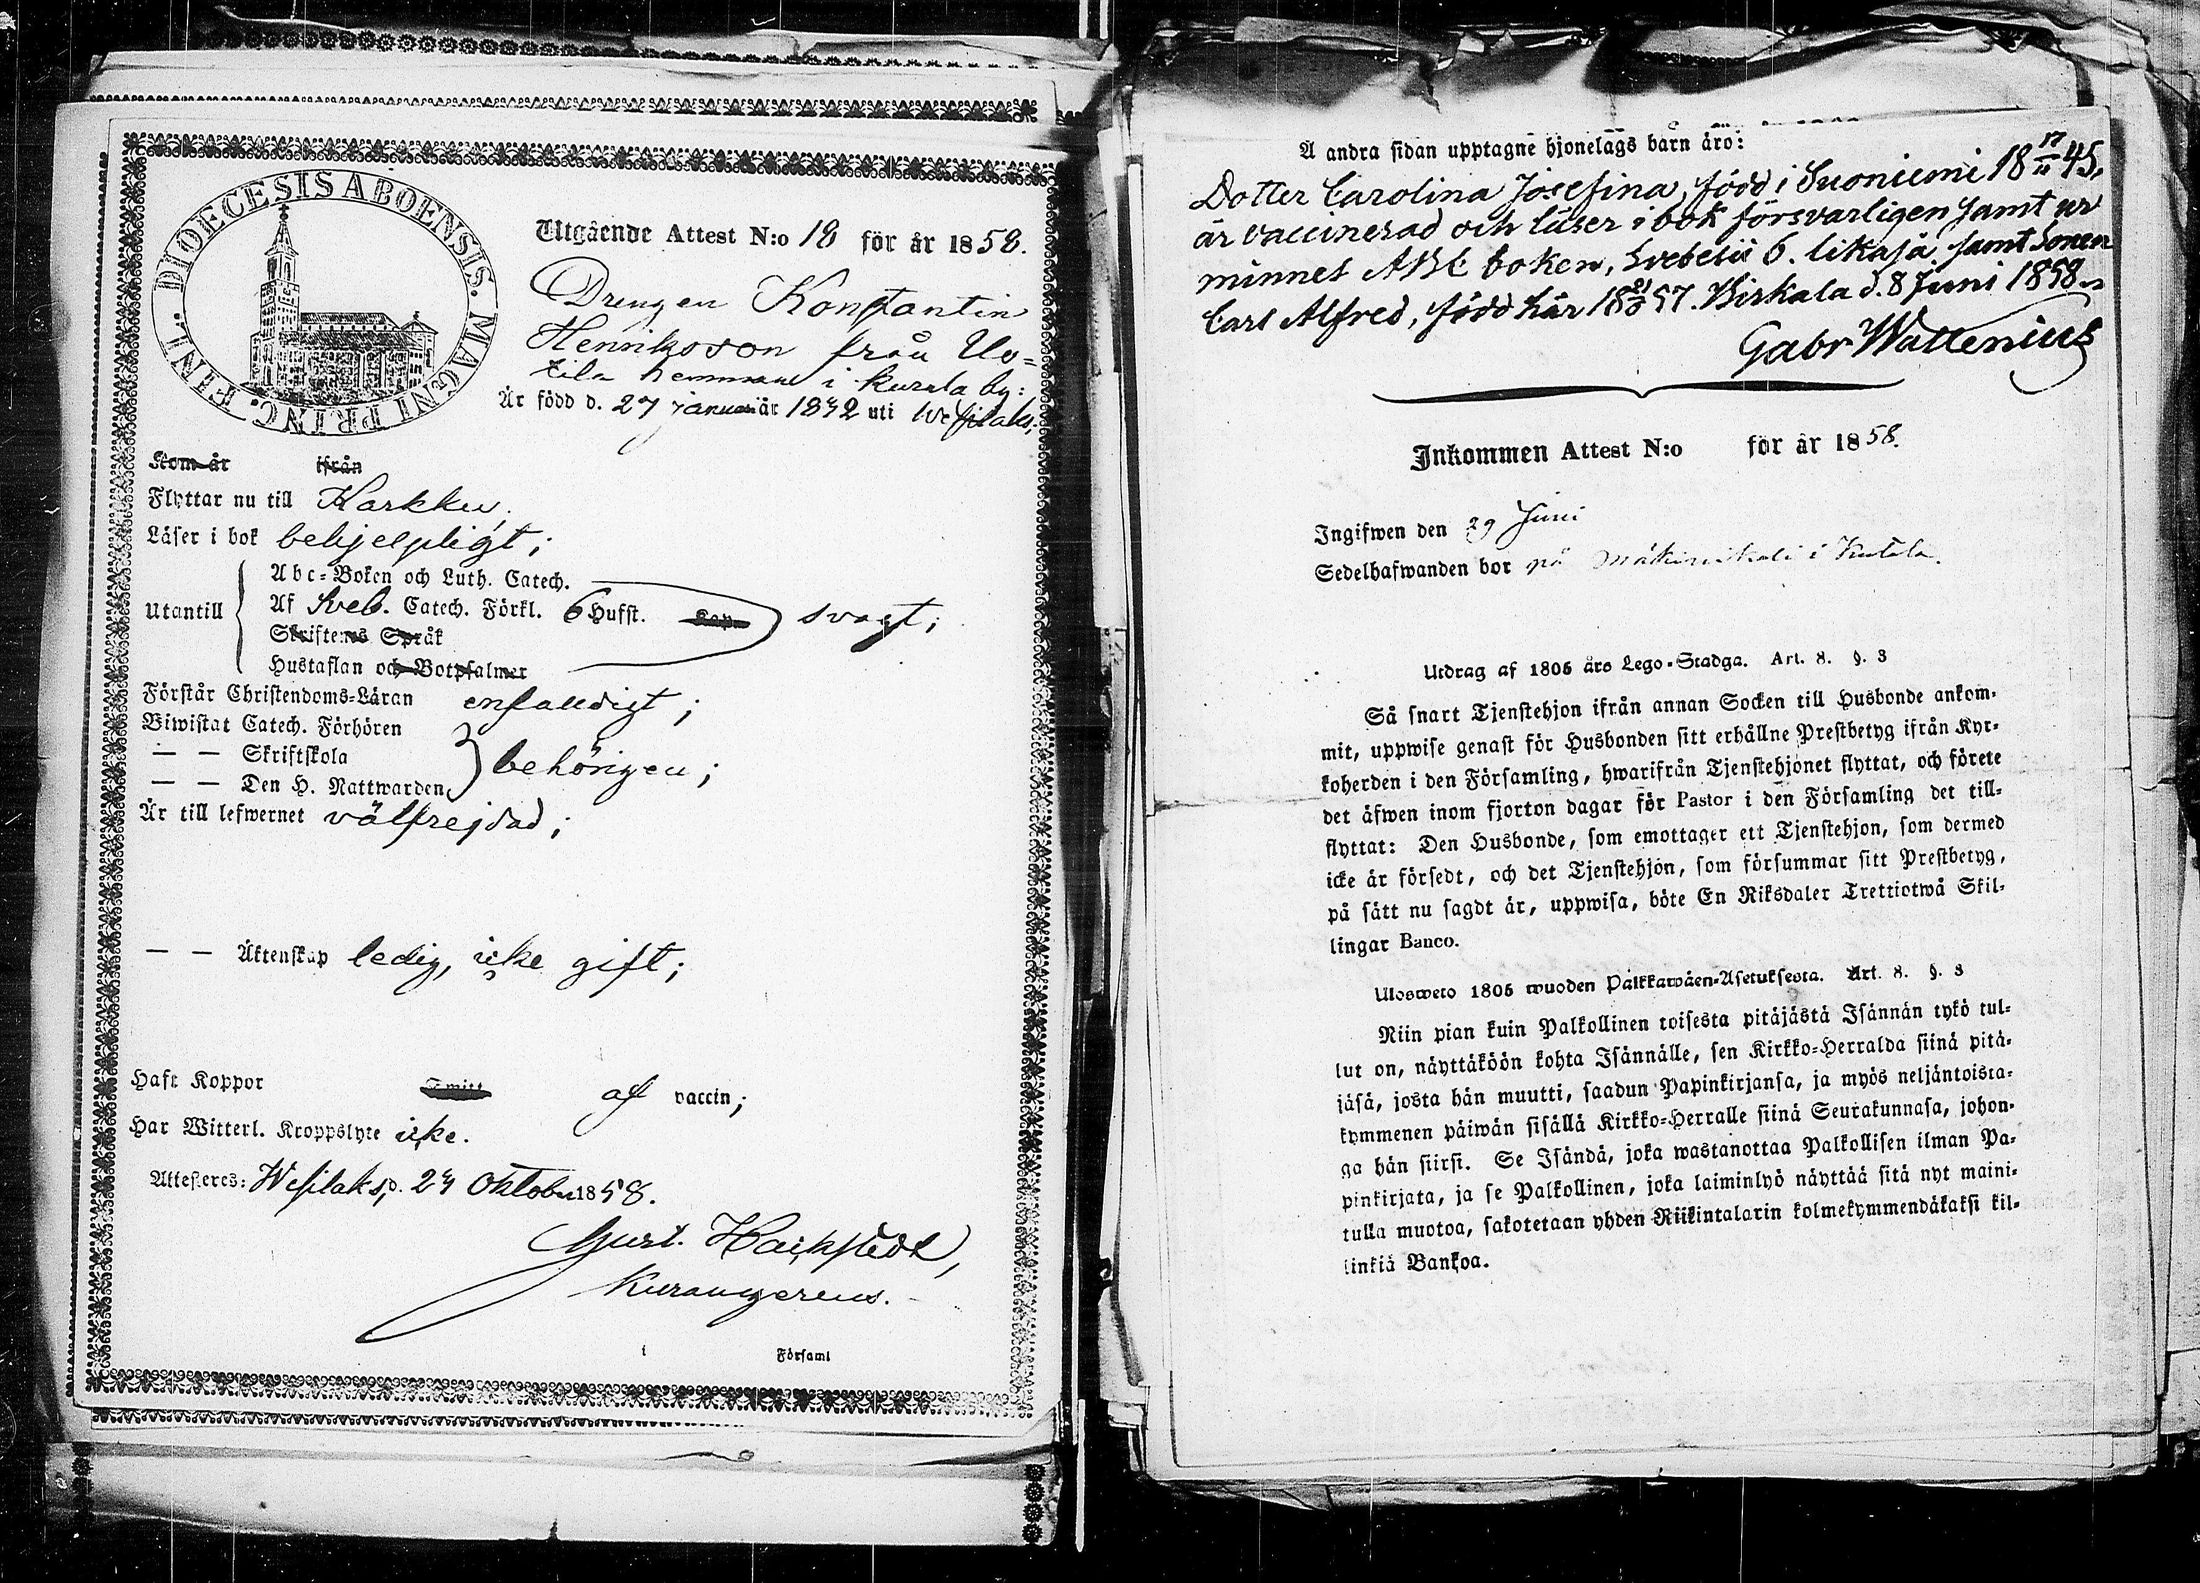 DIOECESIS ABOENSIS. MAGNI PRINC. FINL.
Utgående Attest N:o 18 för år 1858.
Drengen Konstantin
Henriksson från Uo-
tila hemman i kurala by:
Är född d. 27 januari år 1832 uti Wesilaks;
Kom år ifrån
Flyttar nu till Karkku,
Läser i bok behjelpligt;
Utantill
Abc-Boken och Luth. Catech.
Af Sveb. Catech. Förkl. 6 Hufst. Kap. svagt;
Skriftenes Språk
Hustaflan och Botpsalmer
Förstår Christendoms-Läran enfaldigt;
Biwistat Catech. Förhören
— — Skriftskola behörigen;
— — Den H. Nattwarden
Är till lefwernet välfrejdad;
— — Äktenskap ledig, icke gift;
Haft Koppor af vaccin;
Har Witterl. Kroppslyte icke.
Attesteres: Wesilaks, d. 24 Oktober 1858.
Gust. Hackstedt,
i Församl
Å andra sidan upptagne hjonelags barn äro:
Dotter Carolina Josefina, född i Suoniemi 18 17/11 45,
är vaccinerad och läser i bok försvarligen samt ur
minnet ABC boken, Svebelii 6. likaså, samt Sonen
Carl Alfred, född här 18 57. Birkala d. 8 Juni 1858.
Gabr Wallenius
Inkommen Attest N:o för år 1858.
Ingifwen den 29 Juni
Sedelhafwanden bor på i Kutala.
Utdrag af 1805 års Lego-Stadga. Art. 8. §. 3
Så snart Tjenstehjon ifrån annan Socken till Husbonde ankom-
mit, uppwise genast för Husbonden sitt erhållne Prestbetyg ifrån Kyr-
koherden i den Församling, hwarifrån Tjenstehjonet flyttat, och förete
det äfwen inom fjorton dagar för Pastor i den Församling det till-
flyttat: Den Husbonde, som emottager ett Tjenstehjon, som dermed
icke är försedt, och det Tjenstehjon, som försummar sitt Prestbetyg,
på sätt nu sagdt är, uppwisa, böte En Riksdaler Trettiotwå Skil-
lingar Banco.
Ulosweto 1805 wuoden Palkkawäen-Asetuksesta. Art. 8. §. 3
Niin pian kuin Palkollinen toisesta pitäjästä Isännän tykö tul-
lut on, näyttäköön kohta Isännälle, sen Kirkko-Herralda siinä pitä-
jäsä, josta hän muutti, saadun Papinkirjansa, ja myös neljäntoista-
kymmenen päiwän sisällä Kirkko-Herralle siinä Seurakunnasa, johon-
ga hän siirsi. Se Isändä, joka wastanottaa Palkollisen ilman Pa-
pinkirjata, ja se Palkollinen, joka laiminlyö näyttää sitä nyt maini-
tulla muotoa, sakotetaan yhden Riikintalarin kolmekymmendäkaksi kil-
linkiä Bankoa.